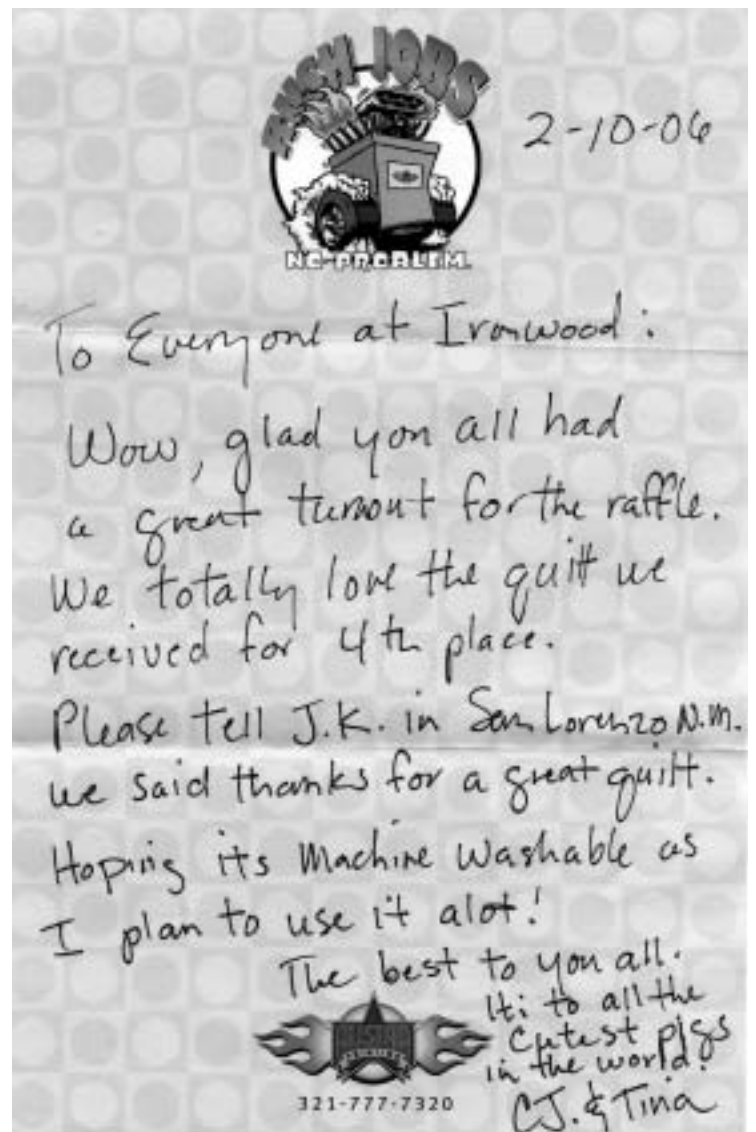 RUSH JOBS
2-10-06
NO PROBLEM.
To Everyone at Ironwood:
Wow, glad you all had
a great turnout for the raffle.
We totally love the quilt we
received for 4th place.
Please tell J.K. in San Lorenzo N.M.
we said thanks for a great quilt.
Hoping its machine washable as
I plan to use it alot!
The best to you all.
Hi to all the
cutest pigs
in the world!
CJ. & Tina
321-777-7320